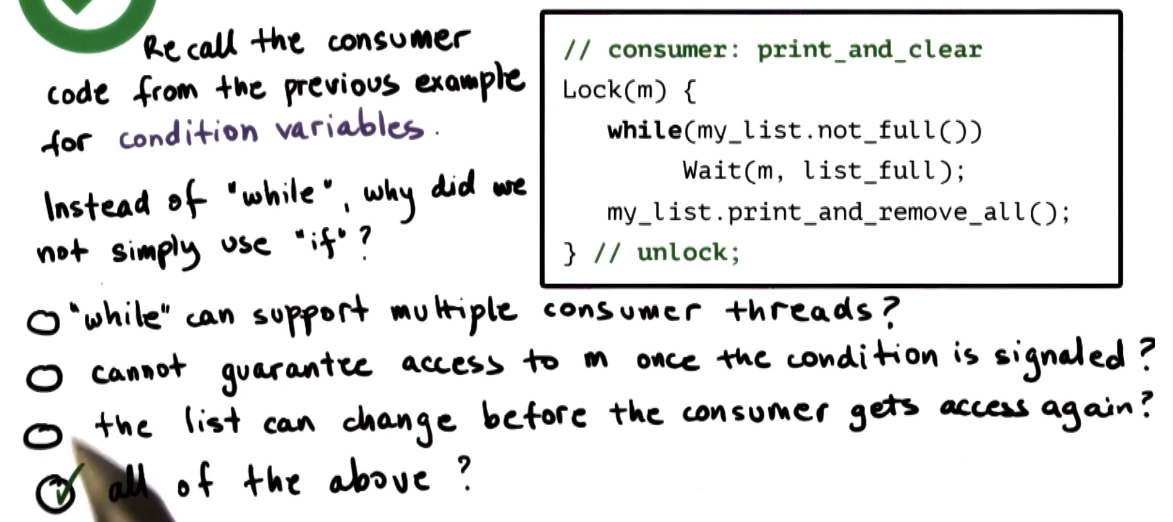 Recall the consumer
code from the previous example
for condition variables.
Instead of "while", why did we
not simply use "if"?
// consumer: print_and_clear
Lock(m) {
while(my_list.not_full())
Wait(m, list_full);
my_list.print_and_remove_all();
} // unlock;
"while" can support multiple consumer threads?
cannot guarantee access to m once the condition is signaled?
the list can change before the consumer gets access again?
all of the above?